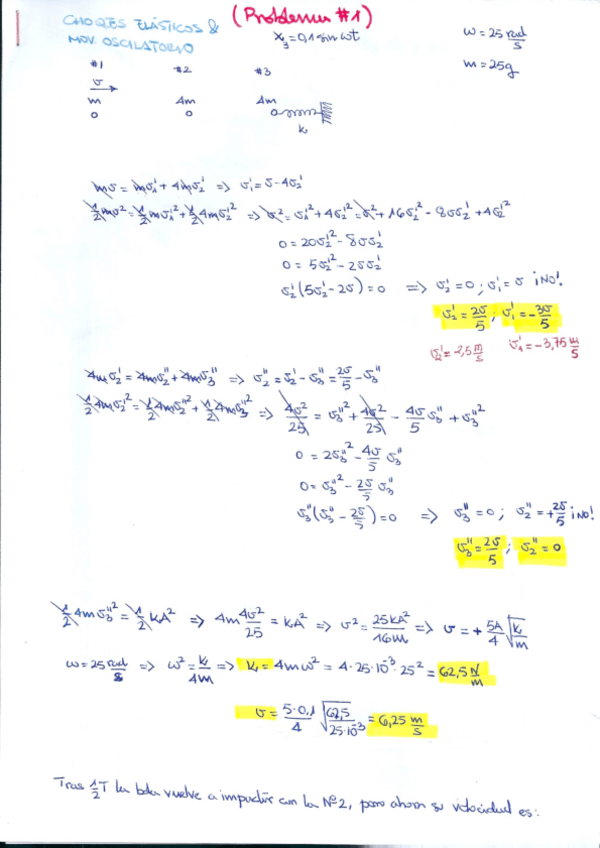 (Problema #1)
CHOQUES ELÁSTICOS &
MOV. OSCILATORIO
x₃=0,1 sin ωt
ω=25 rad/s
m=25g
#1 #2 #3
v
m 4m 4m
k
mv = mv₁' + 4mv₂' => v₁'=v-4v₂'
1/2 mv² = 1/2 mv₁'² + 1/2 4mv₂'² => v²=v₁'²+4v₂'²=v²+16v₂'²-8vv₂'+4v₂'²
0=20v₂'²-8vv₂'
0=5v₂'²-2vv₂'
v₂'(5v₂'-2v)=0 => v₂'=0; v₁'=v ¡NO!
v₂'=2v/5; v₁'=-3v/5
v₂'=2,5 m/s v₁'=-3,75 m/s
4mv₂'=4mv₂''+4mv₃'' => v₂''=v₂'-v₃''=2v/5-v₃''
1/2 4mv₂'²=1/2 4mv₂''²+1/2 4mv₃''² => 4v²/25=v₃''²+4v²/25-4v/5 v₃''+v₃''²
0=2v₃''²-4v/5 v₃''
0=v₃''²-2v/5 v₃''
v₃''(v₃''-2v/5)=0 => v₃''=0; v₂''=+2v/5 ¡NO!
v₃''=2v/5; v₂''=0
1/2 4mv₃''²=1/2 kA² => 4m 4v²/25=kA² => v²=25kA²/16m => v=+5A/4 √k/m
ω=25 rad/s => ω²=k/4m => k=4mω²=4·25·10⁻³·25²=62,5 N/m
v=5·0,1/4 √62,5/25·10⁻³=6,25 m/s
Tras 1/2 T la bola vuelve a impactar con la Nº2, pero ahora su velocidad es: